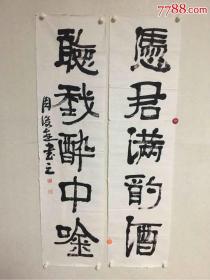 7788.com
憑君满酌酒
聽我醉中唫
周俊杰書之